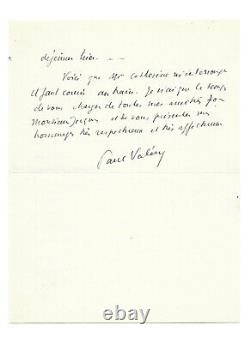 déjeuner hier - -
Voici que Mme Catherine m'interrompt
Il faut courir au train. Je n'ai que le temps
de vous charger de toutes mes amitiés pour
Monsieur Jacques et de vous présenter mes
hommages très respectueux et très affectueux
Paul Valéry
© ebay.com